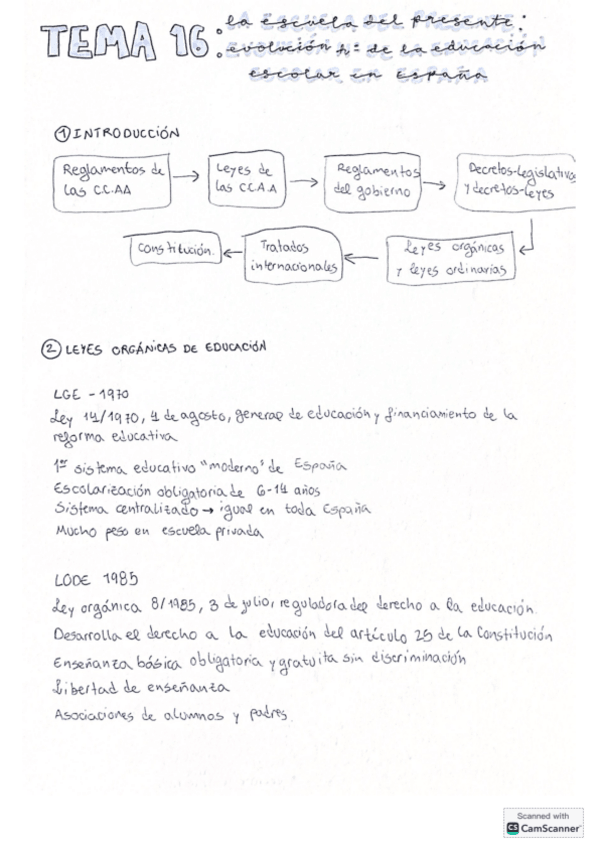 TEMA 16: la escuela del presente:
evolución hª de la educación
escolar en España
① INTRODUCCIÓN
Reglamentos de las CC.AA
Leyes de las CC.A.A
Reglamentos del gobierno
Decretos-legislativos y decretos-leyes
Leyes orgánicas y leyes ordinarias
Tratados internacionales
Constitución.
② LEYES ORGÁNICAS DE EDUCACIÓN
LGE - 1970
Ley 14/1970, 4 de agosto, general de educación y financiamiento de la
reforma educativa
1er sistema educativo "moderno" de España
Escolarización obligatoria de 6-14 años
Sistema centralizado → igual en toda España
Mucho peso en escuela privada
LODE 1985
Ley orgánica 8/1985, 3 de julio, reguladora del derecho a la educación.
Desarrolla el derecho a la educación del artículo 25 de la Constitución
Enseñanza básica obligatoria y gratuita sin discriminación
Libertad de enseñanza
Asociaciones de alumnos y padres.
Scanned with
CS CamScanner